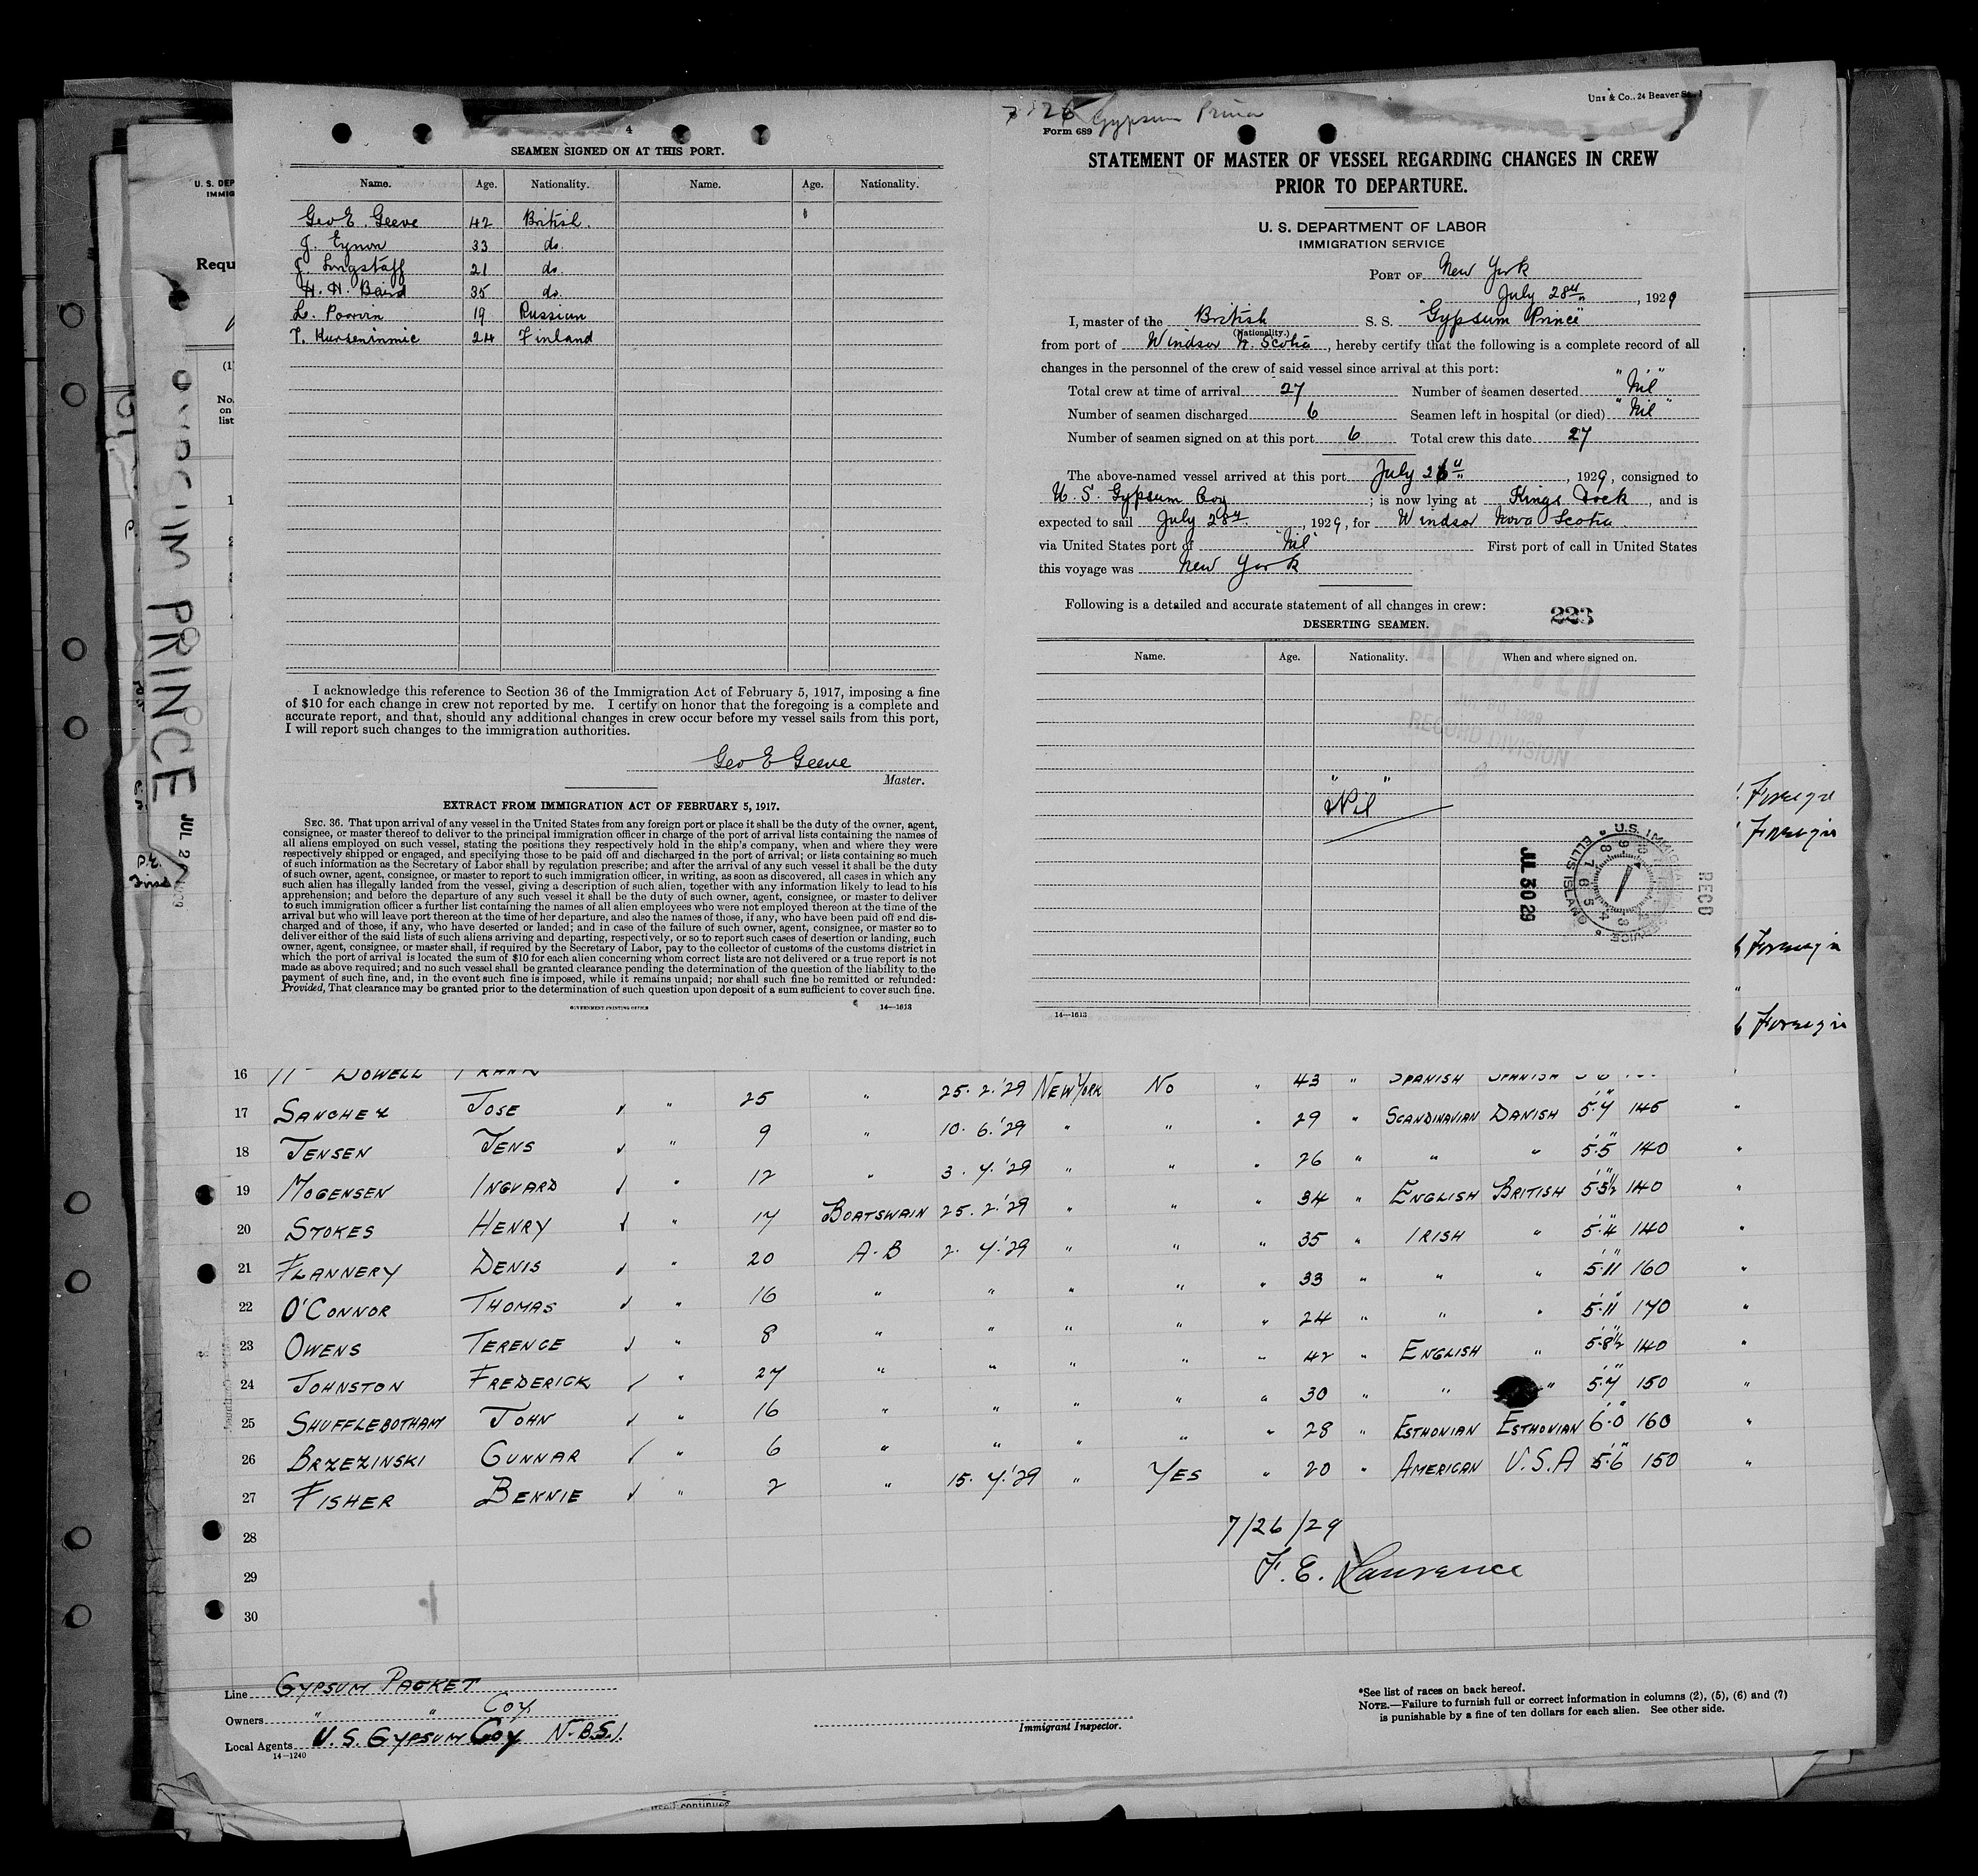 4
SEAMEN SIGNED ON AT THIS PORT.
Name. Age. Nationality. Name. Age. Nationality.
Geo E. Geeve 42 British.
J. Eynon 33 do.
J. Longstaff 21 do.
H. H. Baird 35 do.
L. Poorvin 19 Russian
T. 24 Finland
I acknowledge this reference to Section 36 of the Immigration Act of February 5, 1917, imposing a fine
of $10 for each change in crew not reported by me. I certify on honor that the foregoing is a complete and
accurate report, and that, should any additional changes in crew occur before my vessel sails from this port,
I will report such changes to the immigration authorities.
Geo E Geeve
Master.
EXTRACT FROM IMMIGRATION ACT OF FEBRUARY 5, 1917.
SEC. 36. That upon arrival of any vessel in the United States from any foreign port or place it shall be the duty of the owner, agent,
consignee, or master thereof to deliver to the principal immigration officer in charge of the port of arrival lists containing the names of
all aliens employed on such vessel, stating the positions they respectively hold in the ship's company, when and where they were
respectively shipped or engaged, and specifying those to be paid off and discharged in the port of arrival; or lists containing so much
of such information as the Secretary of Labor shall by regulation prescribe; and after the arrival of any such vessel it shall be the duty
of such owner, agent, consignee, or master to report to such immigration officer, in writing, as soon as discovered, all cases in which any
such alien has illegally landed from the vessel, giving a description of such alien, together with any information likely to lead to his
apprehension; and before the departure of any such vessel it shall be the duty of such owner, agent, consignee, or master to deliver
to such immigration officer a further list containing the names of all alien employees who were not employed thereon at the time of the
arrival but who will leave port thereon at the time of her departure, and also the names of those, if any, who have been paid off and dis-
charged and of those, if any, who have deserted or landed; and in case of the failure of such owner, agent, consignee, or master so to
deliver either of the said lists of such aliens arriving and departing, respectively, or so to report such cases of desertion or landing, such
owner, agent, consignee, or master shall, if required by the Secretary of Labor, pay to the collector of customs of the customs district in
which the port of arrival is located the sum of $10 for each alien concerning whom correct lists are not delivered or a true report is not
made as above required; and no such vessel shall be granted clearance pending the determination of the question of the liability to the
payment of such fine, and, in the event such fine is imposed, while it remains unpaid; nor shall such fine be remitted or refunded:
Provided, That clearance may be granted prior to the determination of such question upon deposit of a sum sufficient to cover such fine.
GOVERNMENT PRINTING OFFICE 14—1613
& Co., 24 Beaver
Gypsum Prince
Form 689
STATEMENT OF MASTER OF VESSEL REGARDING CHANGES IN CREW
PRIOR TO DEPARTURE.
U. S. DEPARTMENT OF LABOR
IMMIGRATION SERVICE
PORT OF New York
July 28th, 1929
I, master of the British S. S. "Gypsum Prince"
(Nationality.)
from port of Windsor N. Scotia, hereby certify that the following is a complete record of all
changes in the personnel of the crew of said vessel since arrival at this port:
Total crew at time of arrival 27 Number of seamen deserted "Nil"
Number of seamen discharged 6 Seamen left in hospital (or died) "Nil"
Number of seamen signed on at this port 6 Total crew this date 27
The above-named vessel arrived at this port July 26th, 1929, consigned to
U. S. Gypsum Coy; is now lying at Kings Dock, and is
expected to sail July 28th, 1929, for Windsor Nova Scotia
via United States port of "Nil" First port of call in United States
this voyage was New York
Following is a detailed and accurate statement of all changes in crew:
223
DESERTING SEAMEN.
Name. Age. Nationality. When and where signed on.
RECEIVED
JUL 30 1929
RECORD DIVISION
" "
Nil
JUL 30 29
RECD
14—1613
U. S. DEP
IMMIG
Requ
No.
on
list
GYPSUM PRINCE
Foreign
Foreign
Foreign
"
Foreign
16 DOWELL FRANK
25. 2.'29 NEW YORK NO " 43 " SPANISH SPANISH
17 SANCHEZ JOSE ✓ " 25 " 10. 6.'29 " " " 29 " SCANDINAVIAN DANISH 5'.7" 145 "
18 JENSEN JENS ✓ " 9 " 3. 7.'29 " " " 26 " " " 5'.5" 140 "
19 MOGENSEN INGVARD ✓ " 12 " 25. 2.'29 " " " 34 " ENGLISH BRITISH 5'.5½" 140 "
20 STOKES HENRY ✓ " 17 BOATSWAIN 2. 7.'29 " " " 35 " IRISH " 5'.4" 140 "
21 FLANNERY DENIS ✓ " 20 A.B " " " " 33 " " " 5'.11" 160 "
22 O'CONNOR THOMAS ✓ " 16 " " " " " 24 " " " 5'.11" 170 "
23 OWENS TERENCE ✓ " 8 " " " " " 42 " ENGLISH " 5'.8½" 140 "
24 JOHNSTON FREDERICK ✓ " 27 " " " " " 30 " " " 5'.7" 150 "
25 SHUFFLEBOTHAM JOHN ✓ " 16 " " " " " 28 " ESTHONIAN ESTHONIAN 6'.0" 160 "
26 BRZEZINSKI GUNNAR ✓ " 6 " 15. 7.'29 " YES " 20 " AMERICAN U.S.A 5'.6" 150 "
27 FISHER BENNIE ✓ " 2
28
29
30
7/26/29
F. E. Lawrence
Line GYPSUM PACKET
Owners " " Coy.
Local Agents U. S. GYPSUM Coy N.B.S.I.
14—1240
Immigrant Inspector.
*See list of races on back hereof.
NOTE.—Failure to furnish full or correct information in columns (2), (5), (6) and (7)
is punishable by a fine of ten dollars for each alien. See other side.